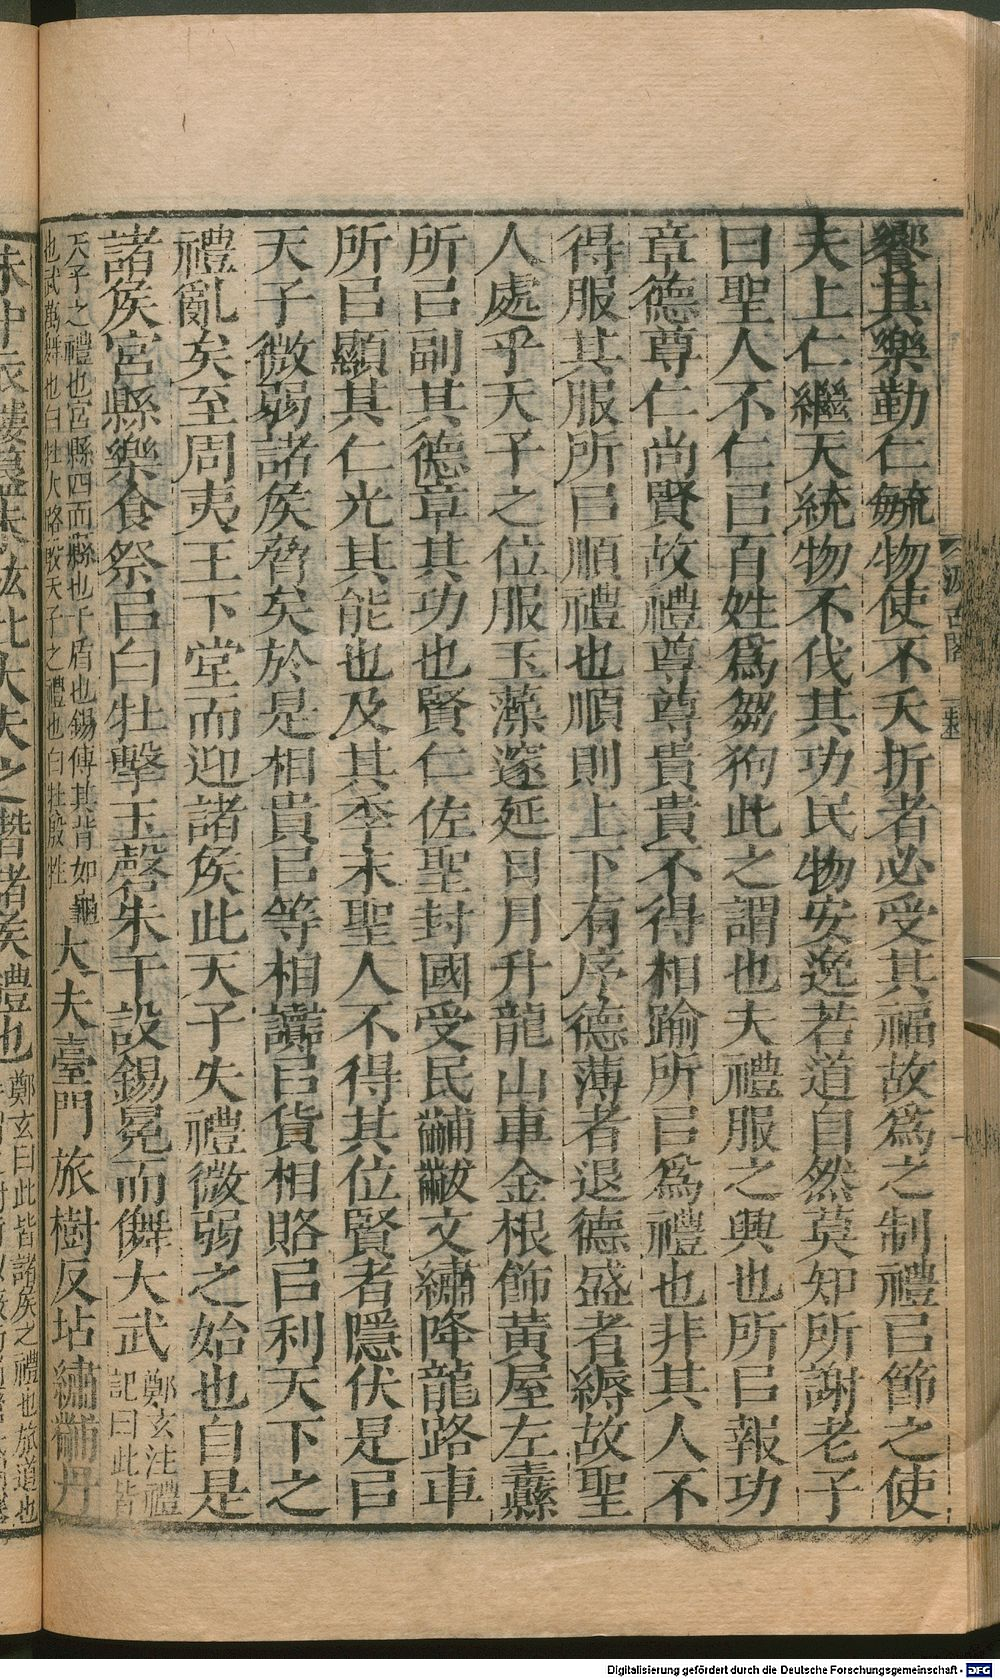 饗其樂勤仁毓物使不夭折者必受其福故爲之制禮㠯節之使
夫上仁繼天統物不伐其功民物安逸若道自然莫知所謝老子
曰聖人不仁㠯百姓爲芻狗此之謂也夫禮服之興也所㠯報功
章德尊仁尚賢故禮尊尊貴貴不得相踰所㠯爲禮也非其人不
得服其服所㠯順禮也順則上下有序德薄者退德盛者縟故聖
人處乎天子之位服玉藻邃延日月升龍山車金根飾黃屋左纛
所㠯副其德章其功也賢仁佐聖封國受民黼黻文繡降龍路車
所㠯顯其仁光其能也及其季末聖人不得其位賢者隱伏是㠯
天子微弱諸侯脅矣於是相貴㠯等相讟㠯貨相賂㠯利天下之
禮亂矣至周夷王下堂而迎諸侯此天子失禮微弱之始也自是
諸侯宮縣樂食祭㠯白牡擊玉磬朱干設錫冕而儛大武鄭玄注禮記曰此皆
天子之禮也宮縣四面縣也干盾也錫傅其背如龜也武萬舞也白牡大路殷天子之禮也白牡殷牲大夫臺門旅樹反坫繡黼丹
朱中衣鏤簋朱紘此大夫之僭諸侯禮也鄭玄曰此皆諸侯之禮也旅道也
汲古閣
Digitalisierung gefördert durch die Deutsche Forschungsgemeinschaft - DFG